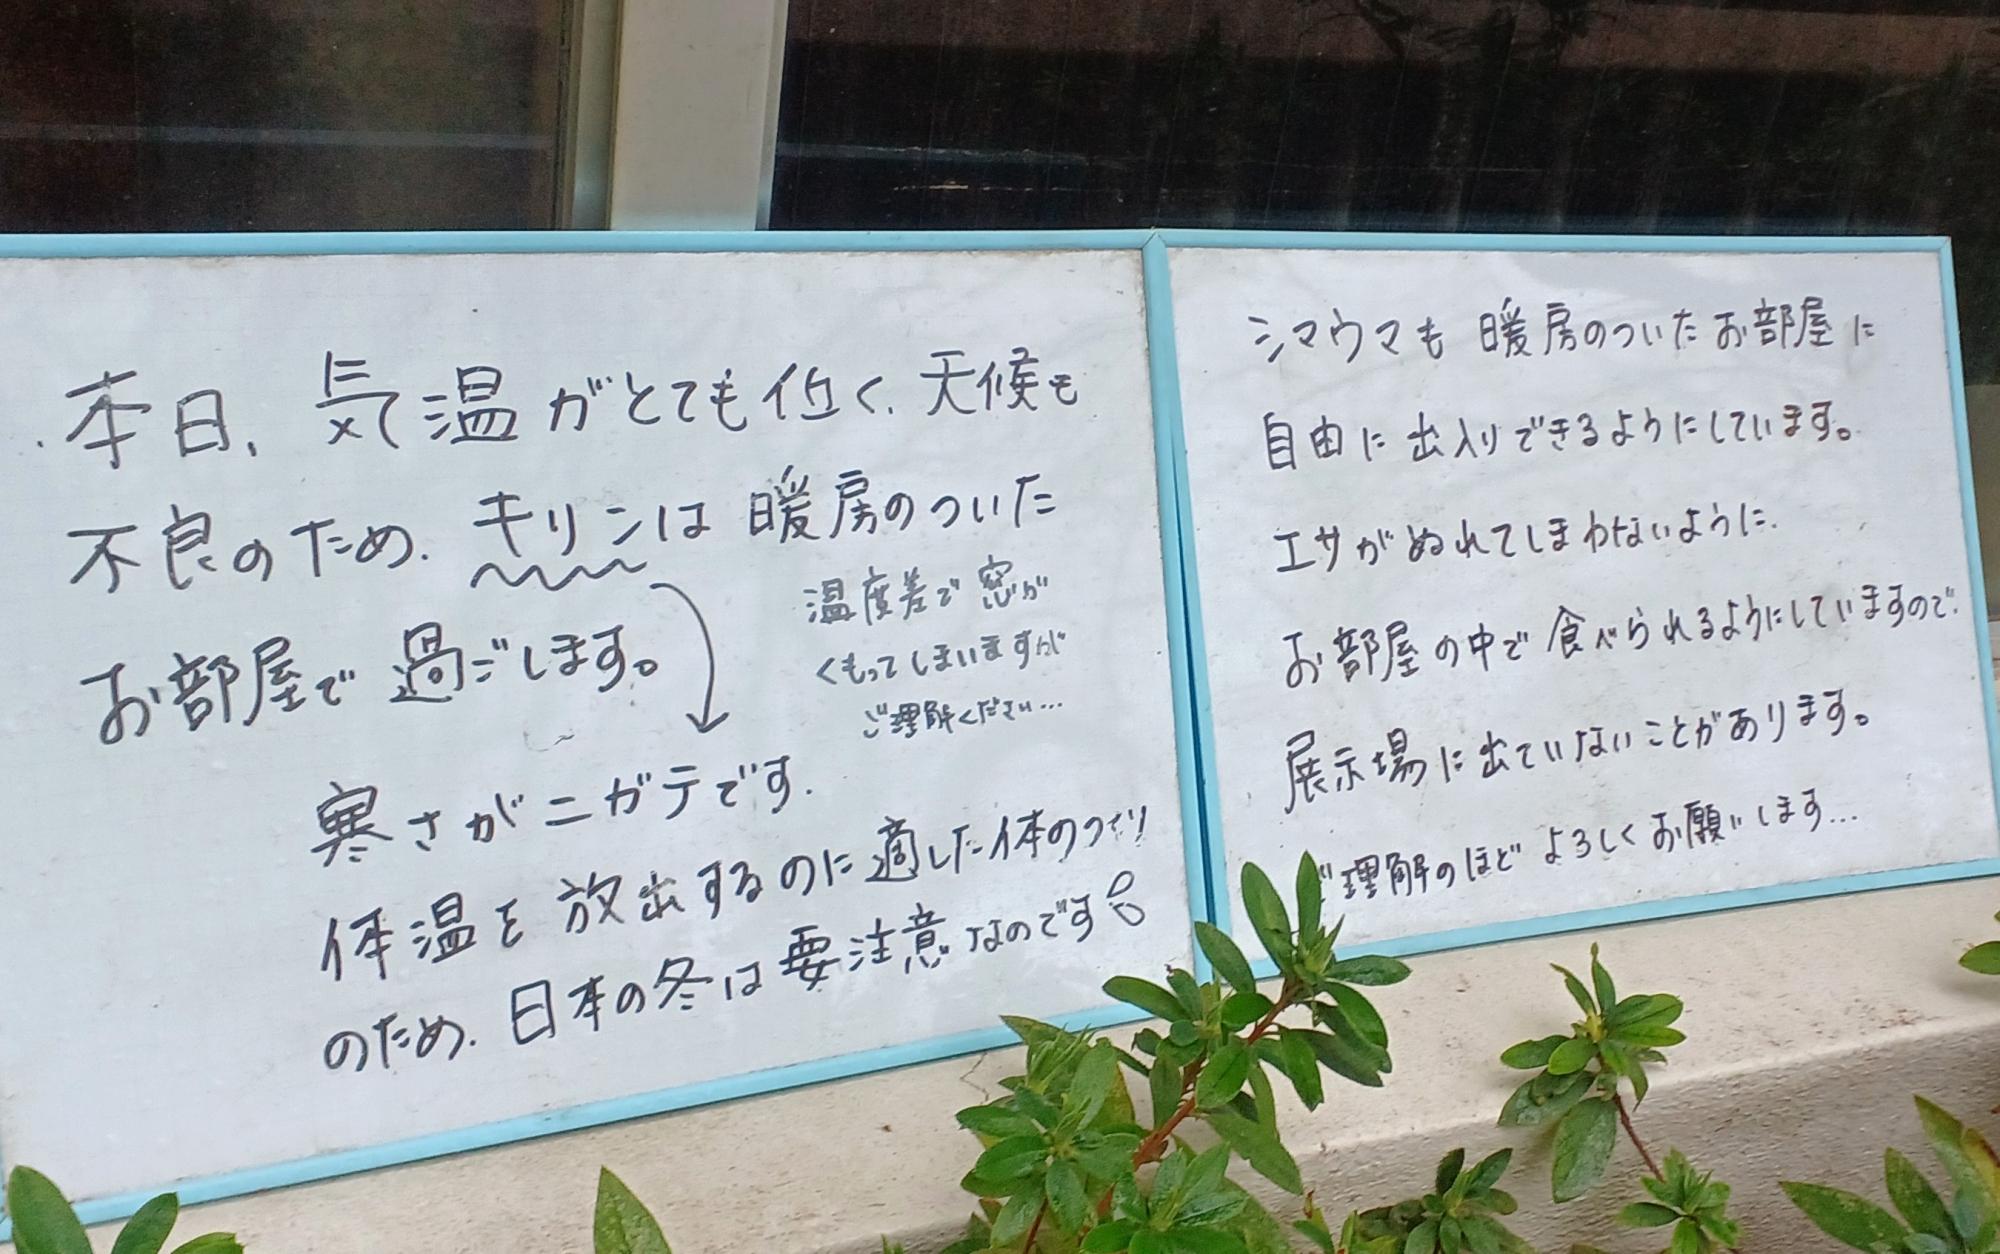 本日、気温がとても低く、天候も
不良のため、キリンは暖房のついた
お部屋で過ごします。
温度差で窓が
くもってしまいますが
ご理解ください…
寒さがニガテです。
体温を放出するのに適した体のつくり
のため、日本の冬は要注意なのです
シマウマも暖房のついたお部屋に
自由に出入りできるようにしています。
エサがぬれてしまわないように、
お部屋の中で食べられるようにしていますので、
展示場に出ていないことがあります。
ご理解のほどよろしくお願いします…